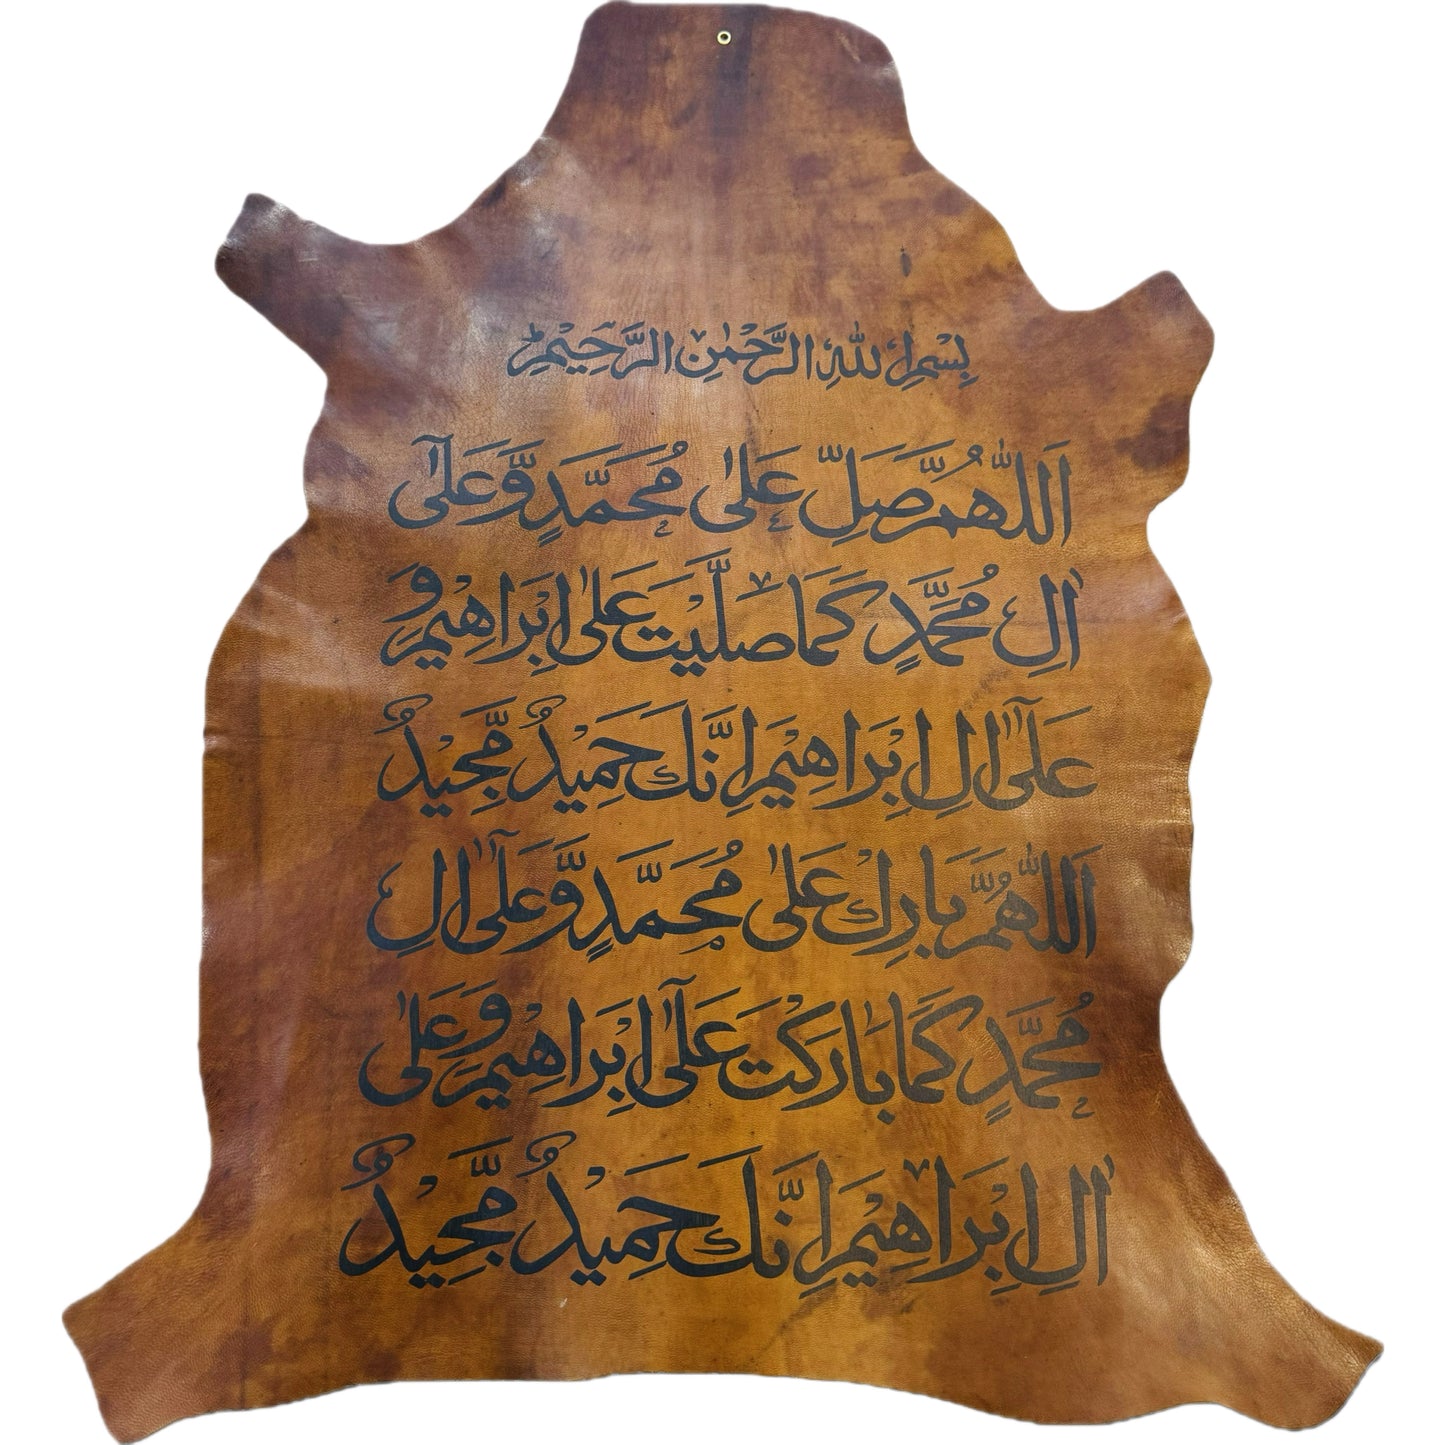 بِسْمِ اللهِ الرَّحْمٰنِ الرَّحِيْمِ
اَللّٰهُمَّ صَلِّ عَلٰى مُحَمَّدٍ وَّعَلٰٓى
اٰلِ مُحَمَّدٍ كَمَا صَلَّيْتَ عَلٰى اِبْرَاهِيْمَ وَ
عَلٰٓى اٰلِ اِبْرَاهِيْمَ اِنَّكَ حَمِيْدٌ مَّجِيْدٌ
اَللّٰهُمَّ بَارِكْ عَلٰى مُحَمَّدٍ وَّعَلٰٓى اٰلِ
مُحَمَّدٍ كَمَا بَارَكْتَ عَلٰٓى اِبْرَاهِيْمَ وَعَلٰى
اٰلِ اِبْرَاهِيْمَ اِنَّكَ حَمِيْدٌ مَّجِيْدٌ